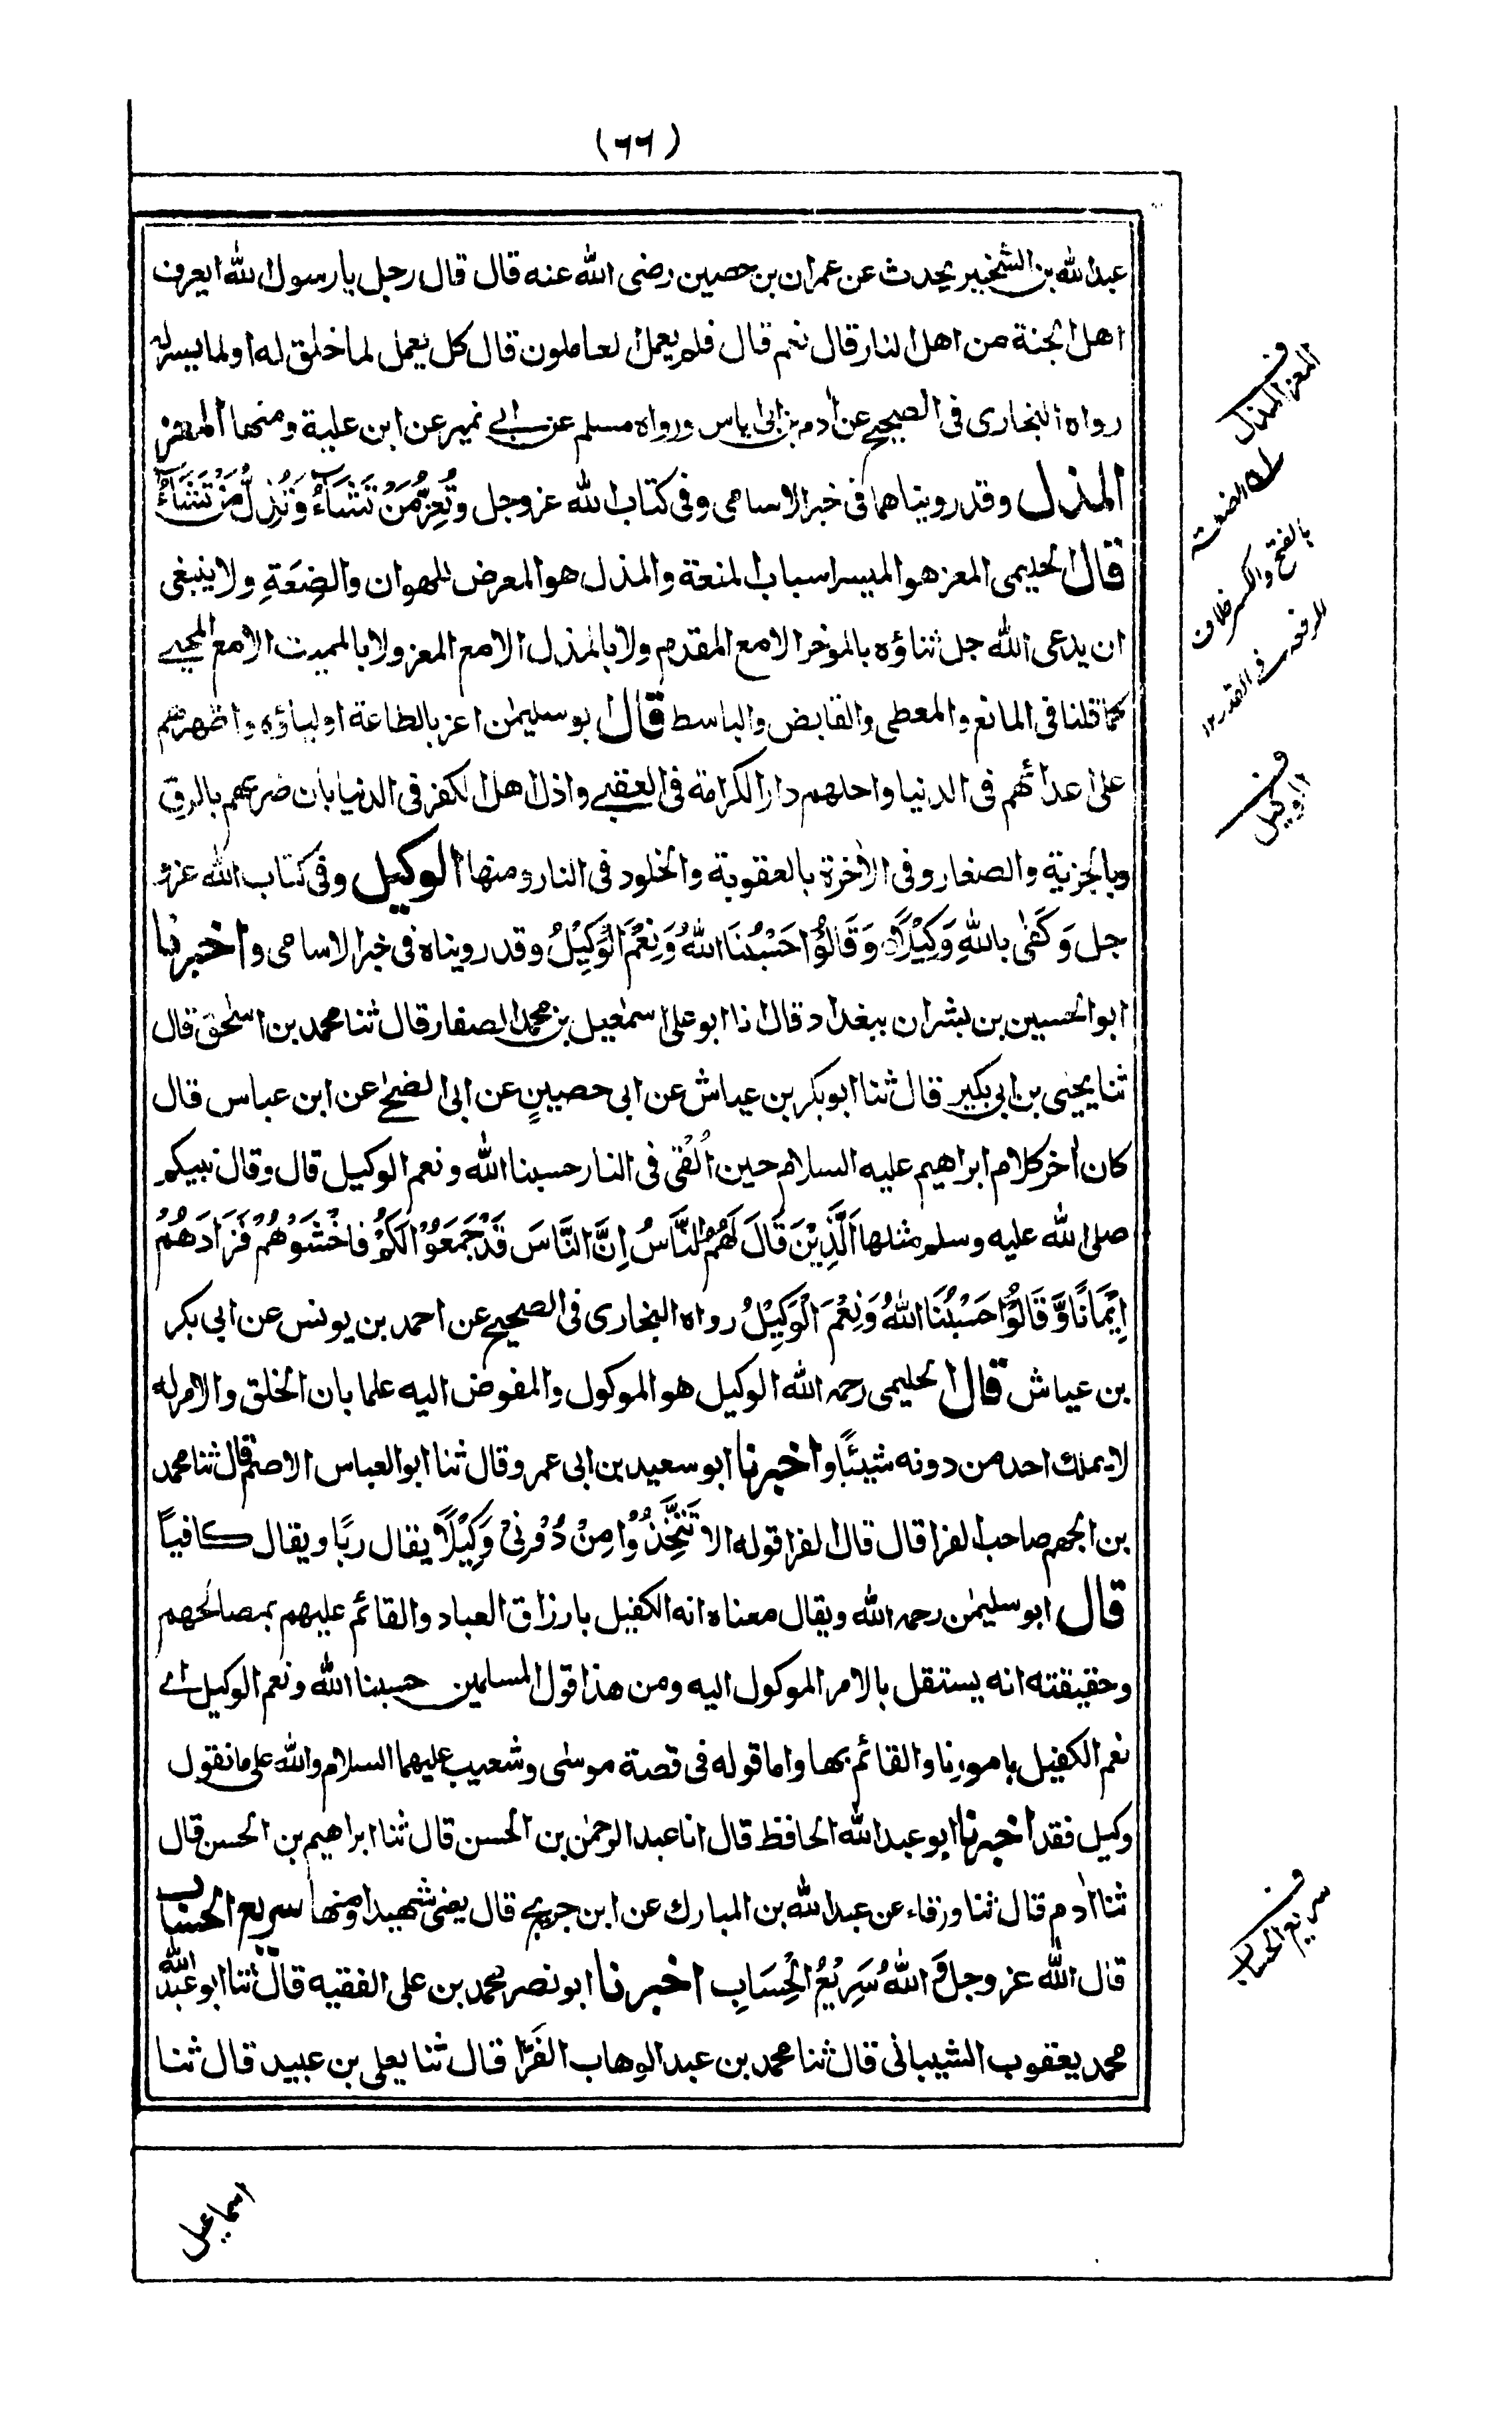 (٦٦)
عبدالله بن الشخير يحدث عن عمران بن حصين رضى الله عنه قال قال رجل يا رسول الله ايعرف
اهل الجنة من اهل النار قال نعم قال فلم يعمل العاملون قال كل يعمل لما خلق له او لما ييسر له
رواه البخارى فى الصحيح عن اٰدم بن ابى اياس ورواه مسلم عن ابے نمير عن ابن علية ومنها المعز
المذل وقد رويناهما فى خبر الاسامى وفى كتاب الله عز وجل وَتُعِزُّ مَنْ تَشَآءُ وَتُذِلُّ مَنْ تَشَآءُ
قال الحليمى المعز هو الميسر اسباب المنعة والمذل هو المعرض للهوان والضِعَةِ ولا ينبغى
ان يدعى الله جل ثناؤه بالموخر الا مع المقدم ولا بالمذل الا مع المعز ولا بالمميت الا مع المحيے
كما قلنا فى المانع والمعطى والقابض والباسط قال ابو سليمٰن اعز بالطاعة اولياؤه واظهرهم
على اعدائهم فى الدنيا واحلهم دار الكرامة فى العقبے واذل اهل الكفر فى الدنيا بان ضربهم بالرق
وبالجزية والصغار وفى الاٰخرة بالعقوبة والخلود فى النار ومنها الوكيل وفى كتاب الله عز و
جل وَكَفٰى بِاللهِ وَكِيْلًا وَقَالُوْا حَسْبُنَا اللهُ وَنِعْمَ الْوَكِيْلُ وقد رويناه فى خبر الاسامى واخبرنا
ابو الحسين بن بشران ببغداد قال انا ابو على اسمٰعيل بن محمد الصفار قال ثنا محمد بن اسحٰق قال
ثنا يحيٰى بن ابى بكير قال ثنا ابو بكر بن عياش عن ابى حصينٍ عن ابى الضحٰے عن ابن عباس قال
كان اٰخر كلام ابراهيم عليه السلام حين اُلْقٰى فى النار حسبنا الله ونعم الوكيل قال وقال نبيكم
صلى الله عليه وسلم مثلها اَلَّذِيْنَ قَالَ لَهُمُ النَّاسُ اِنَّ النَّاسَ قَدْ جَمَعُوْا لَكُمْ فَاخْشَوْهُمْ فَزَادَهُمْ
اِيْمَانًا وَّقَالُوْا حَسْبُنَا اللهُ وَنِعْمَ الْوَكِيْلُ رواه البخارى فى الصحيح عن احمد بن يونس عن ابى بكر
بن عياش قال الحليمى رحمه الله الوكيل هو الموكول والمفوض اليه علما بان الخلق والامر له
لا يملك احد من دونه شيئًا واخبرنا ابو سعيد بن ابى عمرو قال ثنا ابو العباس الاصم قال ثنا محمد
بن الجهم صاحب الفرا قال قال الفرا قوله الا تَتَّخِذُوْا مِنْ دُوْنِىْ وَكِيْلًا يقال ربًا ويقال كافيًا
قال ابو سليمٰن رحمه الله ويقال معناه انه الكفيل بارزاق العباد والقائم عليهم بمصالحهم
وحقيقته انه يستقل بالامر الموكول اليه ومن هذا قول المسلمين حسبنا الله ونعم الوكيل اے
نعم الكفيل بامورنا والقائم بها واما قوله فى قصة موسٰى وشعيب عليهما السلام والله على ما نقول
وكيل فقد اخبرنا ابو عبدالله الحافظ قال انا عبد الرحمٰن بن الحسن قال ثنا ابراهيم بن الحسن قال
ثنا اٰدم قال ثنا ورقاء عن عبدالله بن المبارك عن ابن جريج قال يعنى شهيدا ومنها سريع الحساب
قال الله عز وجل وَاللهُ سَرِيْعُ الْحِسَابِ اخبرنا ابو نصر محمد بن على الفقيه قال ثنا ابو عبدالله
محمد يعقوب الشيبانى قال ثنا محمد بن عبد الوهاب الفَرَّا قال ثنا يعلى بن عبيد قال ثنا
ف
المعز المذل
الضعة
بالفتح والكسر خلاف
الرفعة فى القدر ١٢
ف
الوكيل
ف
سريع الحساب
اسماعيل